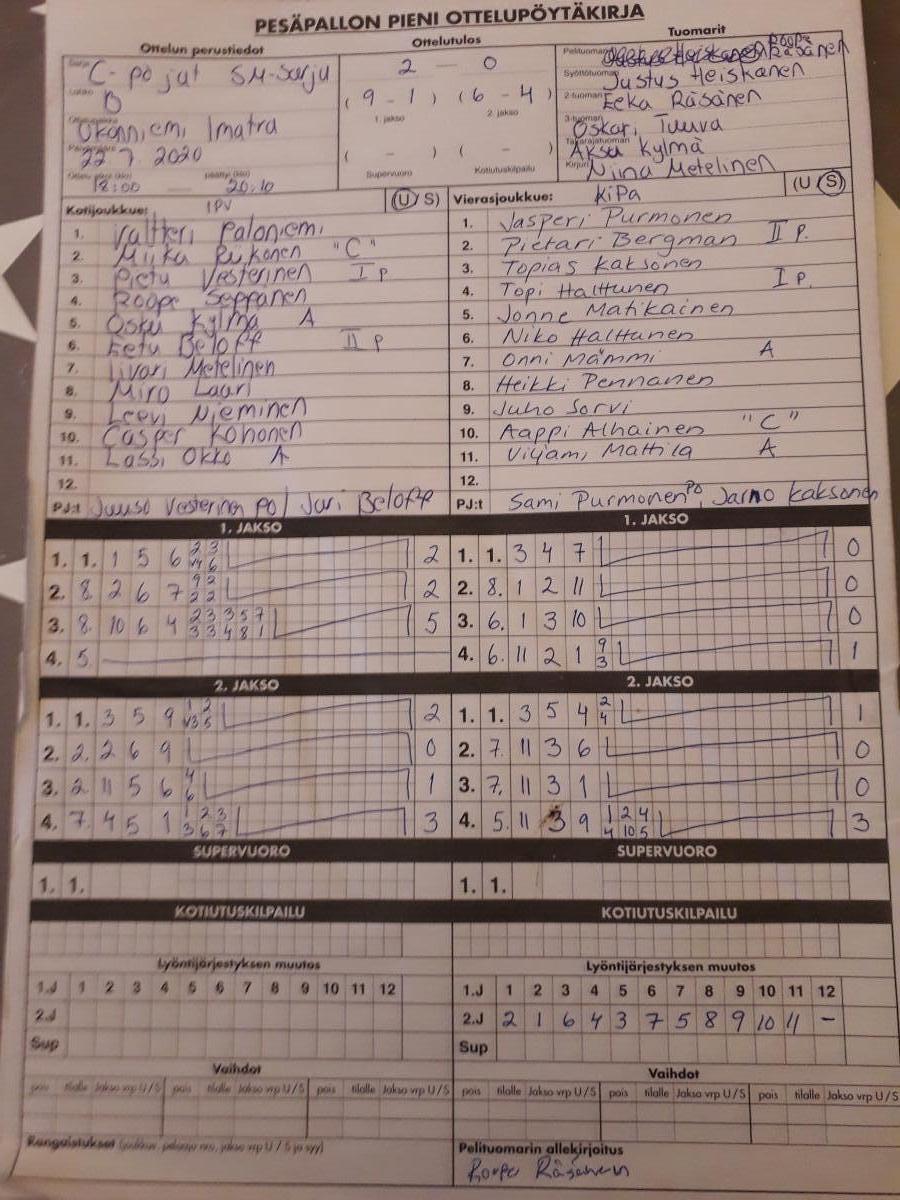 PESÄPALLON PIENI OTTELUPÖYTÄKIRJA
Ottelun perustiedot
Ottelutulos
Tuomarit
C-pojat SM-sarja
Lohko B
Ukonniemi Imatra
22 7. 2020
18:00 — 20.10
2 — 0
( 9 - 1 ) ( 6 - 4 )
1. jakso 2. jakso
( - ) ( - )
Supervuoro Kotiutuskilpailu
Pelituomari Roope Räsänen
Syöttötuomari Justus Heiskanen
2-tuomari Eeka Räsänen
3-tuomari Oskari Tuuva
Takarajatuomari Aksu Kylmä
Kirjuri Niina Metelinen
Kotijoukkue: IPV (U S)
1. Valtteri Paloniemi
2. Miika Riikonen "C"
3. Pietu Vesterinen I P
4. Roope Seppänen
5. Osku Kylmä A
6. Eetu Beloff II P
7. Iivari Metelinen
8. Miro Laari
9. Leevi Nieminen
10. Casper Kohonen
11. Lassi Okko A
12.
PJ:t Juuso Vesterinen PO / Jari Beloff
Vierasjoukkue: KiPa (U S)
1. Jasperi Purmonen
2. Pietari Bergman II P.
3. Topias Kaksonen
4. Topi Halttunen I P.
5. Jonne Matikainen
6. Niko Halttunen
7. Onni Mämmi A
8. Heikki Pennanen
9. Juho Sorvi
10. Aappi Alhainen "C"
11. Viljami Mattila A
12.
PJ:t Sami Purmonen PO, Jarno Kaksonen
1. JAKSO
1. 1. 1 5 6 2 3 6 2
2. 8. 2 6 7 9 2 2 2 2
3. 8. 10 6 4 2 3 3 5 7 3 3 4 8 1 5
4. 5.
1. JAKSO
1. 1. 3 4 7 0
2. 8. 1 2 11 0
3. 6. 1 3 10 0
4. 6. 11 2 1 9 3 1
2. JAKSO
1. 1. 3 5 9 1 2 3 5 2
2. 2. 2 6 9 0
3. 2. 11 5 6 4 6 1
4. 7. 4 5 1 1 2 3 3 6 7 3
2. JAKSO
1. 1. 3 5 4 2 4 1
2. 7. 11 3 6 0
3. 7. 11 3 1 0
4. 5. 11 3 9 1 2 4 4 10 5 3
SUPERVUORO
1. 1.
SUPERVUORO
1. 1.
KOTIUTUSKILPAILU
KOTIUTUSKILPAILU
Lyöntijärjestyksen muutos
1.J 1 2 3 4 5 6 7 8 9 10 11 12
2.J
Sup
Lyöntijärjestyksen muutos
1.J 1 2 3 4 5 6 7 8 9 10 11 12
2.J 2 1 6 4 3 7 5 8 9 10 11 –
Sup
Vaihdot
pois tilalle Jakso vrp U/S pois tilalle Jakso vrp U/S pois tilalle Jakso vrp U/S
Vaihdot
pois tilalle Jakso vrp U/S pois tilalle Jakso vrp U/S pois tilalle Jakso vrp U/S
Rangaistukset (joukkue, pelaaja nro, jakso vrp U / S ja syy)
Pelituomarin allekirjoitus
Roope Räsänen